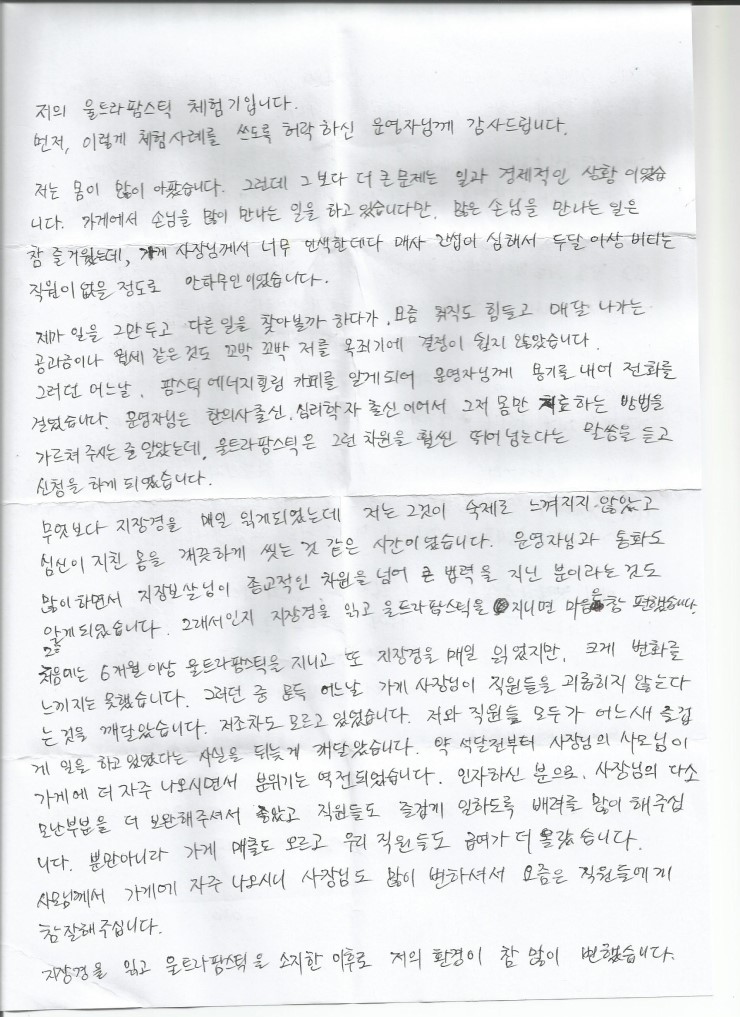 저의 울트라팜스틱 체험기입니다.
먼저, 이렇게 체험사례를 쓰도록 허락하신 운영자님께 감사드립니다.
저는 몸이 많이 아팠습니다. 그런데 그보다 더 큰 문제는 일과 경제적인 상황이었습
니다. 가게에서 손님을 많이 만나는 일을 하고 있습니다만, 많은 손님을 만나는 일은
참 즐거웠는데, 가게 사장님께서 너무 인색한데다 매사 간섭이 심해서 두달 이상 버티는
직원이 없을 정도로 안하무인이었습니다.
제가 일을 그만두고 다른일을 찾아볼까 하다가, 요즘 취직도 힘들고 매달 나가는
공과금이나 월세 같은 것도 꼬박 꼬박 저를 옥죄기에 결정이 쉽지 않았습니다.
그러던 어느날, 팜스틱에너지힐링 카페를 알게되어 운영자님께 용기를 내어 전화를
걸었습니다. 운영자님은 한의사출신, 심리학자 출신이어서 그저 몸만 치료하는 방법을
가르쳐 주시는 줄 알았는데, 울트라팜스틱은 그런 차원을 훨씬 뛰어넘는다는 말씀을 듣고
신청을 하게 되었습니다.
무엇보다 지장경을 매일 읽게되었는데 저는 그것이 숙제로 느껴지지 않았고
심신이 지친 몸을 깨끗하게 씻는 것 같은 시간이었습니다. 운영자님과 통화도
많이하면서 지장보살님이 종교적인 차원을 넘어 큰 법력을 지닌 분이라는 것도
알게되었습니다. 그래서인지 지장경을 읽고 울트라팜스틱을 지니면 마음은 참 편했습니다.
처음에는 6개월이상 울트라팜스틱을 지니고 또 지장경을 매일 읽었지만, 크게 변화를
느끼지는 못했습니다. 그러던 중 문득 어느날 가게 사장님이 직원들을 괴롭히지 않는다
는 것을 깨달았습니다. 저조차도 모르고 있었습니다. 저와 직원들 모두가 어느새 즐겁
게 일을 하고있었다는 사실을 뒤늦게 깨달았습니다. 약 석달전부터 사장님의 사모님이
가게에 더 자주 나오시면서 분위기는 역전되었습니다. 인자하신 분으로, 사장님의 다소
모난부분을 더 보완해주셔서 좋았고 직원들도 즐겁게 일하도록 배려를 많이 해주십
니다. 뿐만아니라 가게 매출도 오르고 우리 직원들도 급여가 더 올랐습니다.
사모님께서 가게에 자주 나오시니 사장님도 많이 변하셔서 요즘은 직원들에게
참 잘해주십니다.
지장경을 읽고 울트라팜스틱을 소지한 이후로 저의 환경이 참 많이 변했습니다.